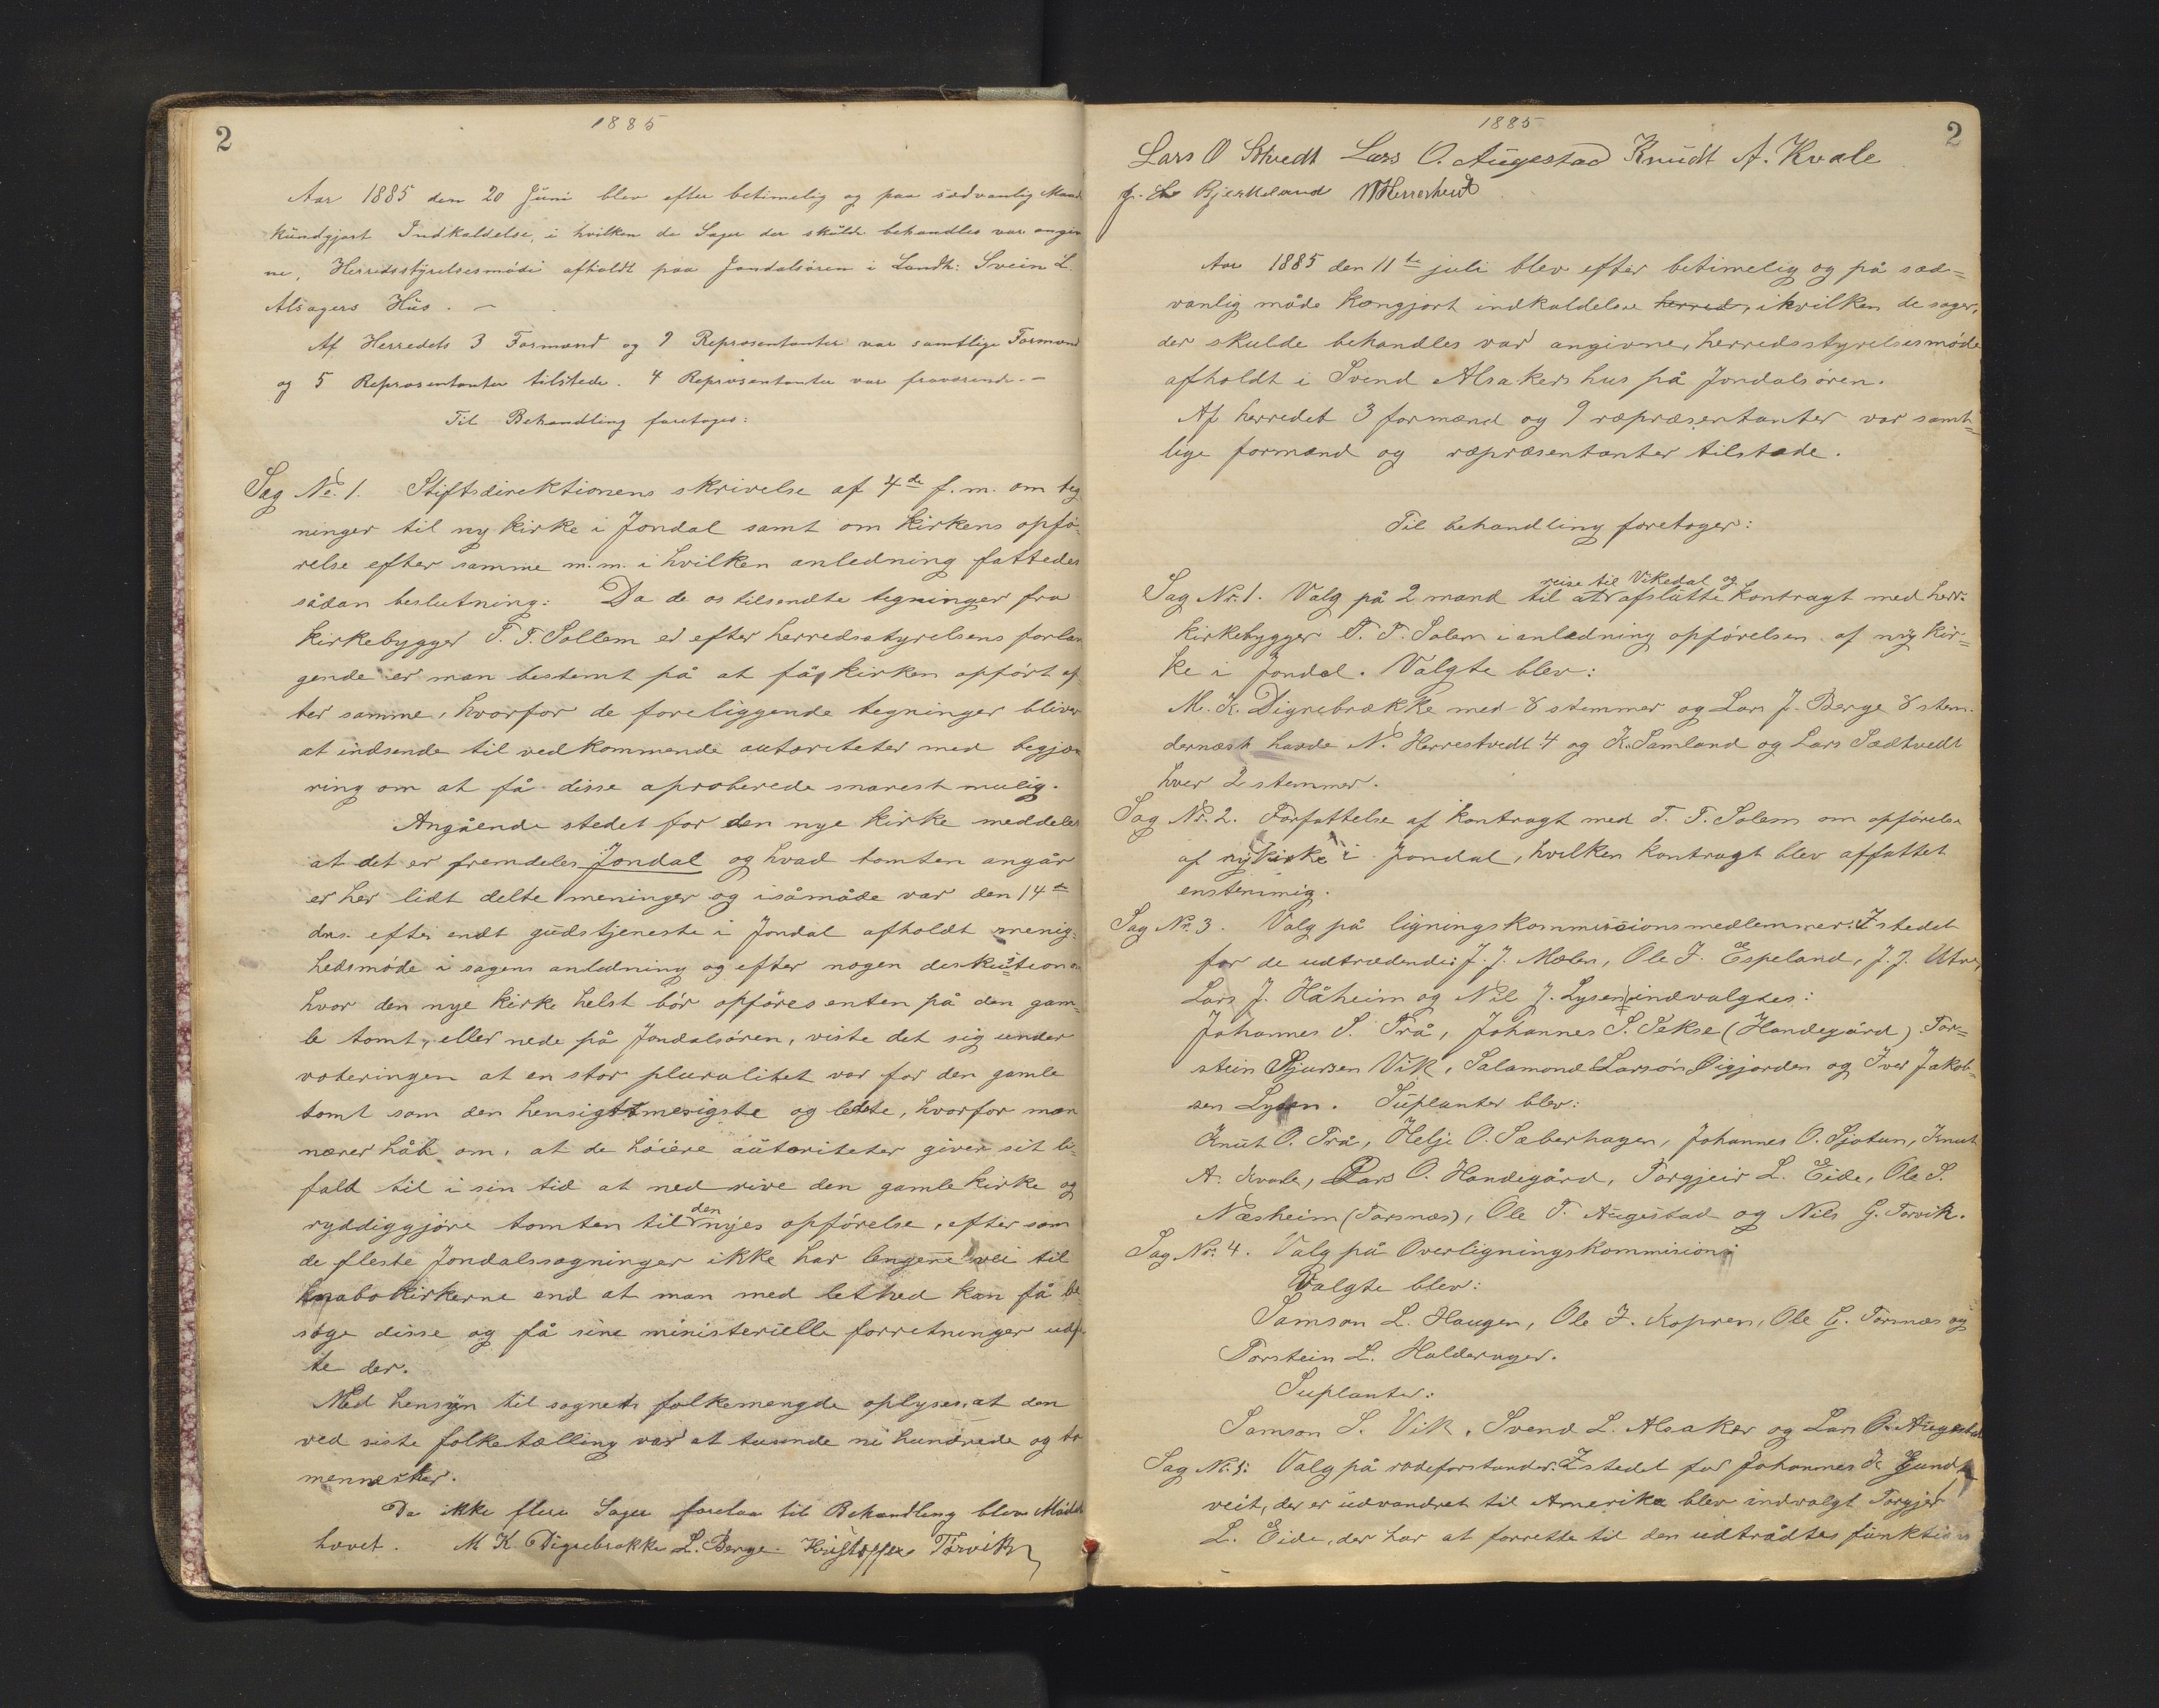 1885
2
Aar 1885 den 20 Juni blev efter betimelig og paa sædvanlig Maade
kundgjort Indkaldelse, i hvilken de Sager der skulde behandles var angiv
ne, Herredsstyrelsesmøde afholdt paa Jondalsøren i Landh: Svein L.
Alsagers Hus. —
Af Herredets 3 Formænd og 9 Repræsentanter var samtlige Formænd
og 5 Repræsentanter tilstede. 4 Repræsentanter var fraværende. —
Til Behandling foretoges:
Sag No. 1. Stiftsdirektionens skrivelse af 4de f.m. om teg
ninger til ny kirke i Jondal samt om kirkens opfø-
relse efter samme m.m. i hvilken anledning fattedes
sådan beslutning: Da de os tilsendte tegninger fra
kirkebygger T. T. Sollem er efter herredsstyrelsens forlan
gende er man bestemt på at få kirken opført ef
ter samme, hvorfor de foreliggende tegninger bliver
at indsende til vedkommende autoriteter med begjæ
ring om at få disse aproberede snarest mulig.
Angående stedet for den nye kirke meddeles
at det er fremdeles Jondal og hvad tomten angår
er her lidt delte meninger og isåmåde var den 14de
dns. efter endt gudstjeneste i Jondal afholdt menig-
hedsmøde i sagens anledning og efter nogen deskution om
hvor den nye kirke helst bør opføres enten på den gam-
le tomt, eller nede på Jondalsøren, viste det sig under
voteringen at en stor pluralitet var for den gamle
tomt som den hensigtsmesigste og letteste, hvorfor man
nærer håb om, at de høiere autoriteter giver sit bi-
fald til i sin tid at nedrive den gamle kirke og
ryddiggjøre tomten til den nyes opførelse, eftersom
de fleste Jondalssogninger ikke har lengere vei til
nabokirkerne end at man med lethed kan få be-
søge disse og få sine ministerielle forretninger udfø
te der.
Med hensyn til sognets folkemengde oplyses, at den
ved siste folketælling var at tusinde ni hundrede og to
mennesker.
Da ikke flere Sager forelaa til Behandling blev Mødet
hævet. M K Digrebrække L. Berge. Kristoffer Torvik
1885
2
Lars O Sætvedt Lars O. Augestad Knudt A. Kvale
Bjerkeland N Herrestvedt
Aar 1885 den 11te juli blev efter betimelig og på sæd-
vanlig måde kongjort indkaldelse herred, i hvilken de sager,
der skulde behandles var angivne, herredsstyrelsesmøde
afholdt i Svend Alsakers hus på Jondalsøren.
Af herredet 3 formænd og 9 repræsentanter var samt-
lige formænd og repræsentanter tilstæde.
Til behandling foretoges:
Sag No. 1. Valg på 2 mænd til at reise til Vikedal og afslutte kontragt med herr.
kirkebygger T. T. Solem i anledning opførelsen af ny kir-
ke i Jondal. Valgte blev:
M. K. Digrebrække med 8 stemmer og Lars J. Berge 8 stem.
dernæst havde N. Herrestvedt 4 og K. Samland og Lars Sædtvedt
hver 2 stemmer.
Sag No. 2. Forfattelse af kontragt med T. T. Solem om opførelse
af ny kirke i Jondal, hvilken kontragt blev affattet
enstemmig.
Sag No. 3. Valg på ligningskommissionsmedlemmer. I stedet
for de udtrædende: J. J. Mælen, Ole J. Espeland, J. J. Utne,
Lars J. Håheim og Nil J. Lysen indvalgtes:
Johannes S. Trå, Johannes S. Sekse (Handegård) Tor-
stein Sjursen Vik, Salamond Larsøn Øigjorden og Iver Jakob-
sen Lysen. Suplanter blev:
Knut O. Trå, Helje O. Sæberhagen, Johannes O. Sjotun, Knut
A. Kvale, Lars O. Handegård, Torgjeir L. Eide, Ole S.
Næsheim (Torsnæs), Ole T. Augestad og Nils G. Torvik.
Sag No. 4. Valg på Overligningskommision
Valgte blev:
Samson L. Haugen, Ole J. Kopren, Ole G. Torsnæs og
Torstein L. Halderager.
Suplanter:
Samson S. Vik, Svend L. Alsaker og Lars O. Augestad
Sag No. 5. Valg på rodeforstander. I stedet for Johannes
veit, der er udvandret til Amerika blev indvalgt Torgjer
L. Eide, der har at forrette til den udtrådtes funktions